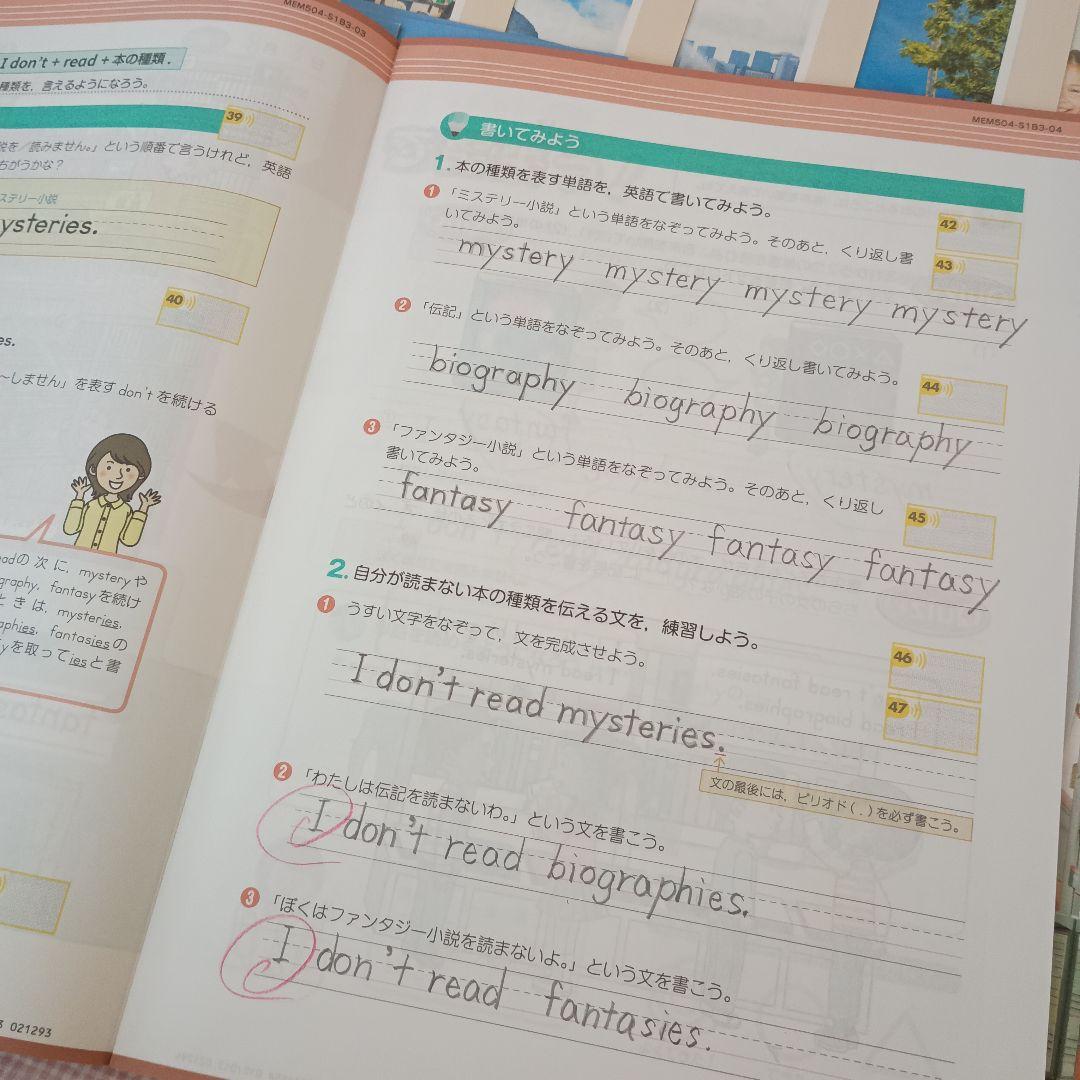 MEM504-S1B3-03
I don't + read + 本の種類.
種類を，言えるようになろう。
39
説を／読みません。」という順番で言うけれど，英語
ちがうかな？
ステリー小説
ysteries.
40
es.
～しません」を表す don't を続ける
eadの次に，mysteryや
graphy，fantasyを続け
ときは，mysteries，
aphies，fantasiesの
yを取ってiesと書
021293
MEM504-S1B3-04
書いてみよう
1. 本の種類を表す単語を，英語で書いてみよう。
1 「ミステリー小説」という単語をなぞってみよう。そのあと，くり返し書
いてみよう。
42
43
mystery mystery mystery mystery
2 「伝記」という単語をなぞってみよう。そのあと，くり返し書いてみよう。
44
biography biography biography
3 「ファンタジー小説」という単語をなぞってみよう。そのあと，くり返し
書いてみよう。
45
fantasy fantasy fantasy fantasy
2. 自分が読まない本の種類を伝える文を，練習しよう。
1 うすい文字をなぞって，文を完成させよう。
46
47
I don't read mysteries.
文の最後には，ピリオド(.)を必ず書こう。
2 「わたしは伝記を読まないわ。」という文を書こう。
I don't read biographies.
3 「ぼくはファンタジー小説を読まないよ。」という文を書こう。
I don't read fantasies.